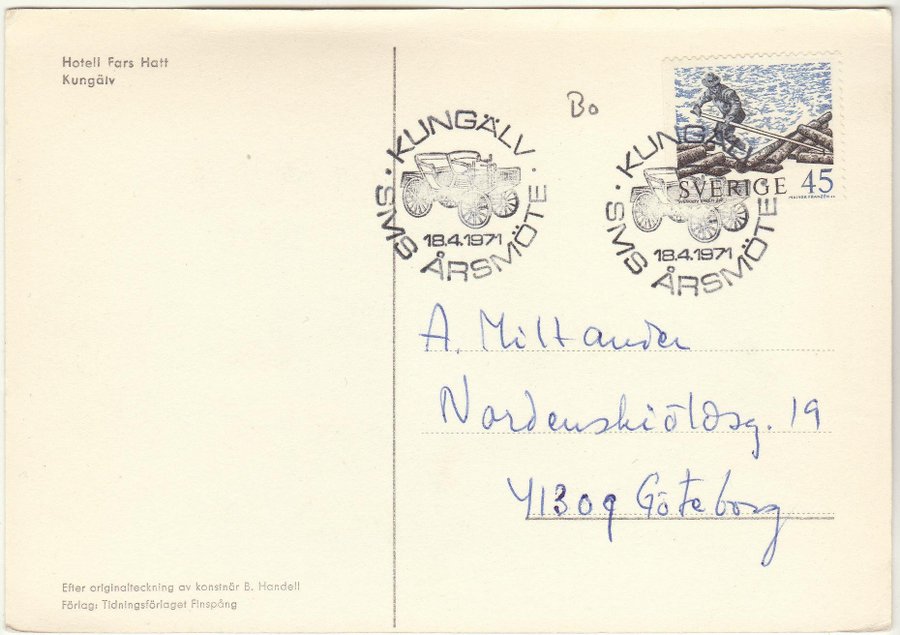 Hotell Fars Hatt
Kungälv
Bo
· KUNGÄLV ·
18.4.1971
SMS ÅRSMÖTE
· KUNGÄLV ·
18.4.1971
SMS ÅRSMÖTE
SVERIGE 45
A. Miltander
Nordenskiöldsg. 19
41309 Göteborg
Efter originalteckning av konstnär B. Handell
Förlag: Tidningsförlaget Finspång